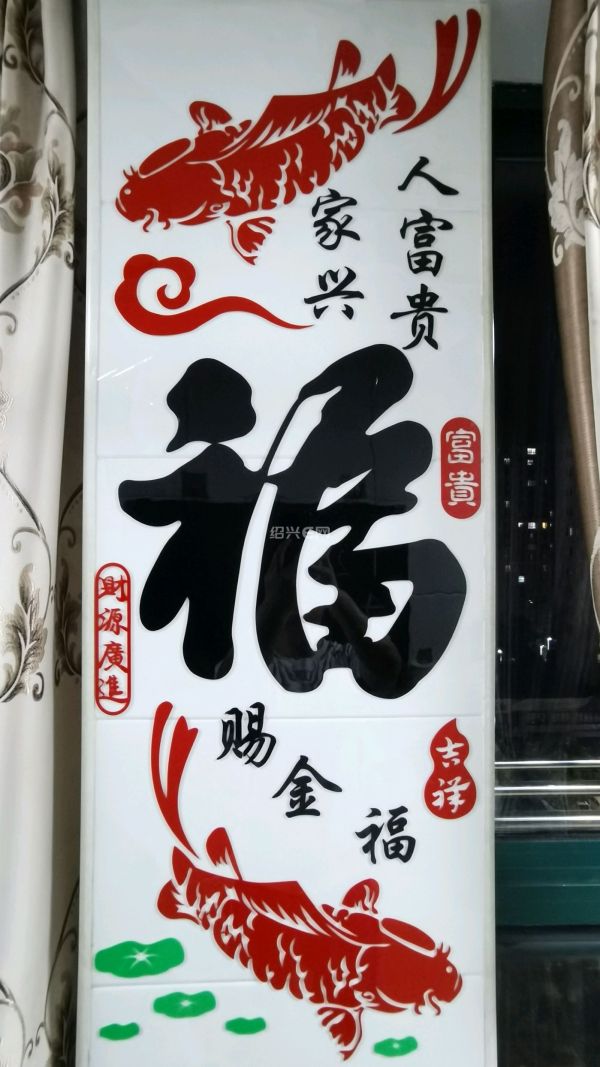 人富贵
家兴
福
富貴
財源廣進
赐金福
吉祥
绍兴E网